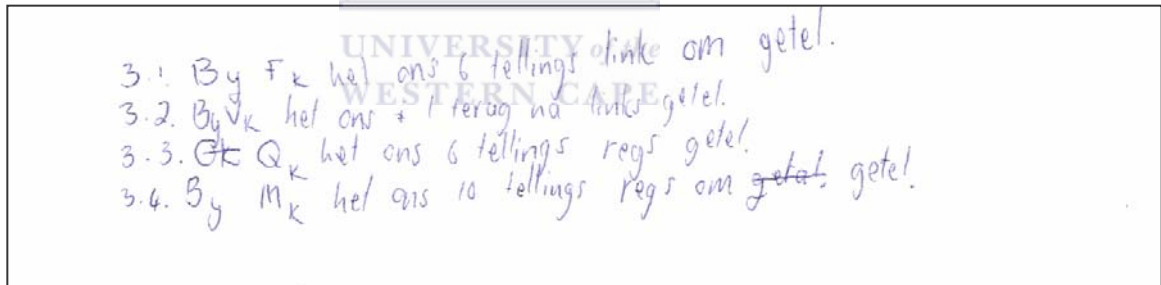 UNIVERSITY of the
WESTERN CAPE
3.1 By Fk het ons 6 tellings link om getel.
3.2. By Vk het ons 1 terug na links getel.
3.3. Qk het ons 6 tellings regs getel.
3.4. By Mk het ons 10 tellings regs om getal. getel.